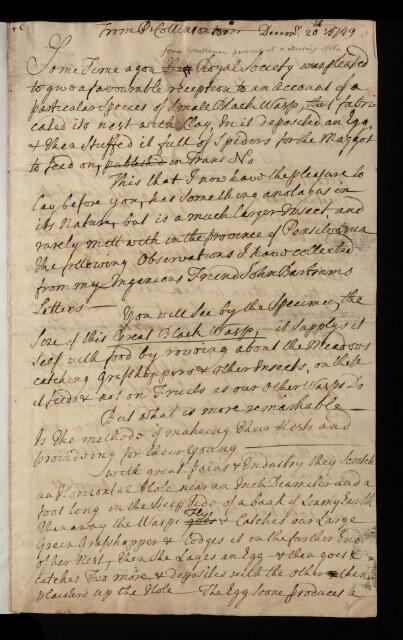 From P Collinson Decemr 20th 1749
some Gentlemen present at a meeting of the
Some Time agon the Royal Society was pleased
to give a favourable reception to an Account of a
particular Species of Small Black Wasp, that fabri
cated its nest with Clay, in it deposited an Egg
& then stuffed it full of Spiders for the Maggot
to feed on, published in Trans No
This that I now have the pleasure to
Lay before you, has Something analagus in
its Nature, but is a much larger Insect, and
rarely mett with in the province of Pensilvania
the following Observations I have collected
from my Ingenious Friend John Bartrams
Letters
You will see by the Specimen, the
Size of this Great Black Wasp, it supplys it
self with food by roving about the Meadows
catching Grashoppers & other Insects, on these
it feeds & not on Fruits as our other Wasps Do
But what is more remarkable
Is the methode of makeing their Nests and
provideing for their young
with great pains & Industry they scratch
an Horizontal Hole near an Inch Diameter and a
foot long in the steep side of a bank of Loamy Earth
then away the Wasps Flys goes & Catches our Large
Green Grashopper & Lodges it in the farther End
of her Nest, then she Layes an Egg & then goes &
catches Two more, & deposites with the other then
plaisters up the Hole The Egg soone produces a